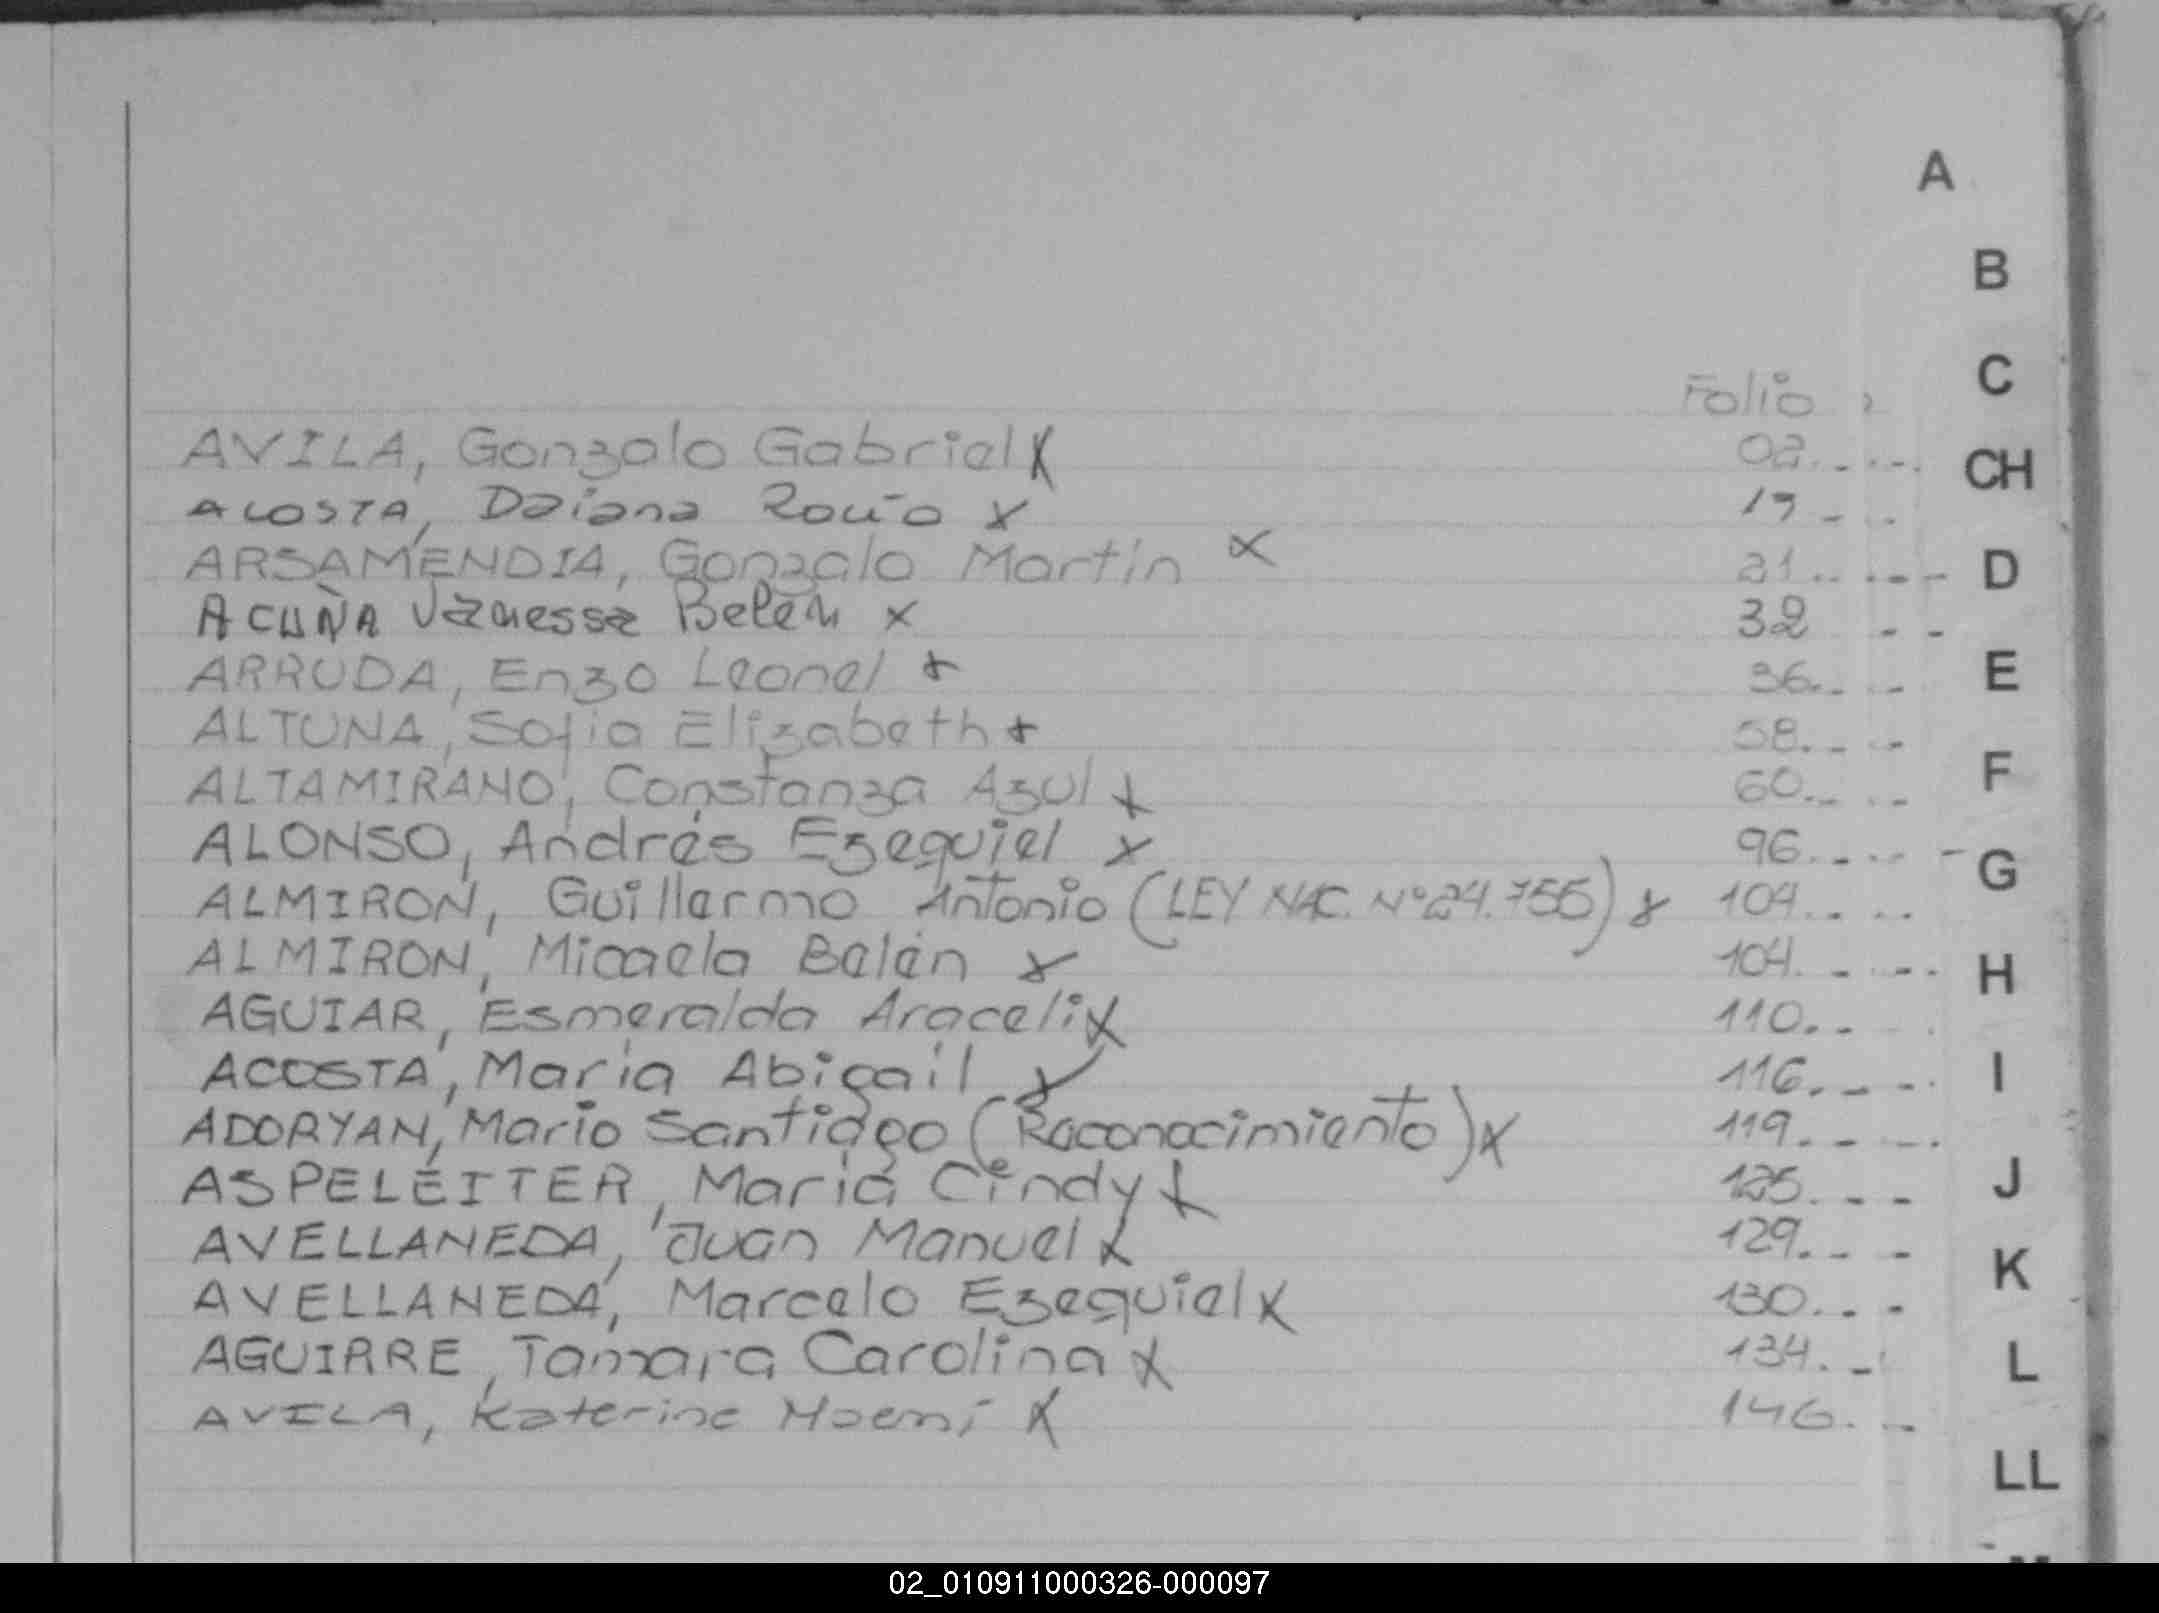 A
B
C
Folio
AVILA, Gonzalo Gabriel X 02.
CH
ACOSTA, Daiana Rocío X 19
ARSAMENDIA, Gonzalo Martín X 21.
D
ACUÑA Vanessa Belén X 32
ARRUDA, Enzo Leonel X 36.
E
ALTUNA, Sofia Elizabeth X 58.
ALTAMIRANO, Constanza Azul X 60.
F
ALONSO, Andrés Ezequiel X 96.
G
ALMIRON, Guillermo Antonio (LEY NAC. Nº 24.755) X 104.
ALMIRON, Micaela Belén X 104.
H
AGUIAR, Esmeralda Araceli X 110.
ACOSTA, Maria Abigail X 116.
I
ADORYAN, Mario Santiago (Reconocimiento) X 119.
ASPELEITER, Maria Cindy X 125.
J
AVELLANEDA, Juan Manuel X 129.
K
AVELLANEDA, Marcelo Ezequiel X 130.
AGUIRRE, Tamara Carolina X 134.
L
AVILA, Katerine Noemí X 146.
LL
02_010911000326-000097